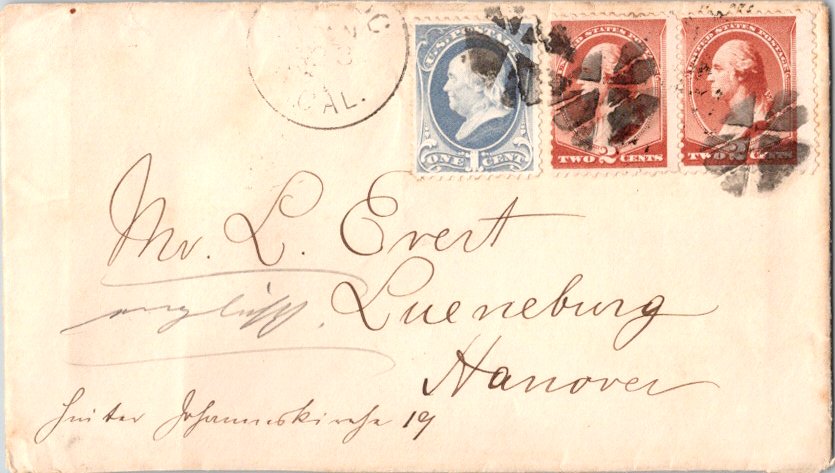 CAL.
U.S. POSTAGE
ONE 1 CENT
UNITED STATES POSTAGE
TWO 2 CENTS
UNITED STATES POSTAGE
TWO 2 CENTS
Mr. L. Evert
Lueneburg
Hanover
Hinter Johanniskirche 19